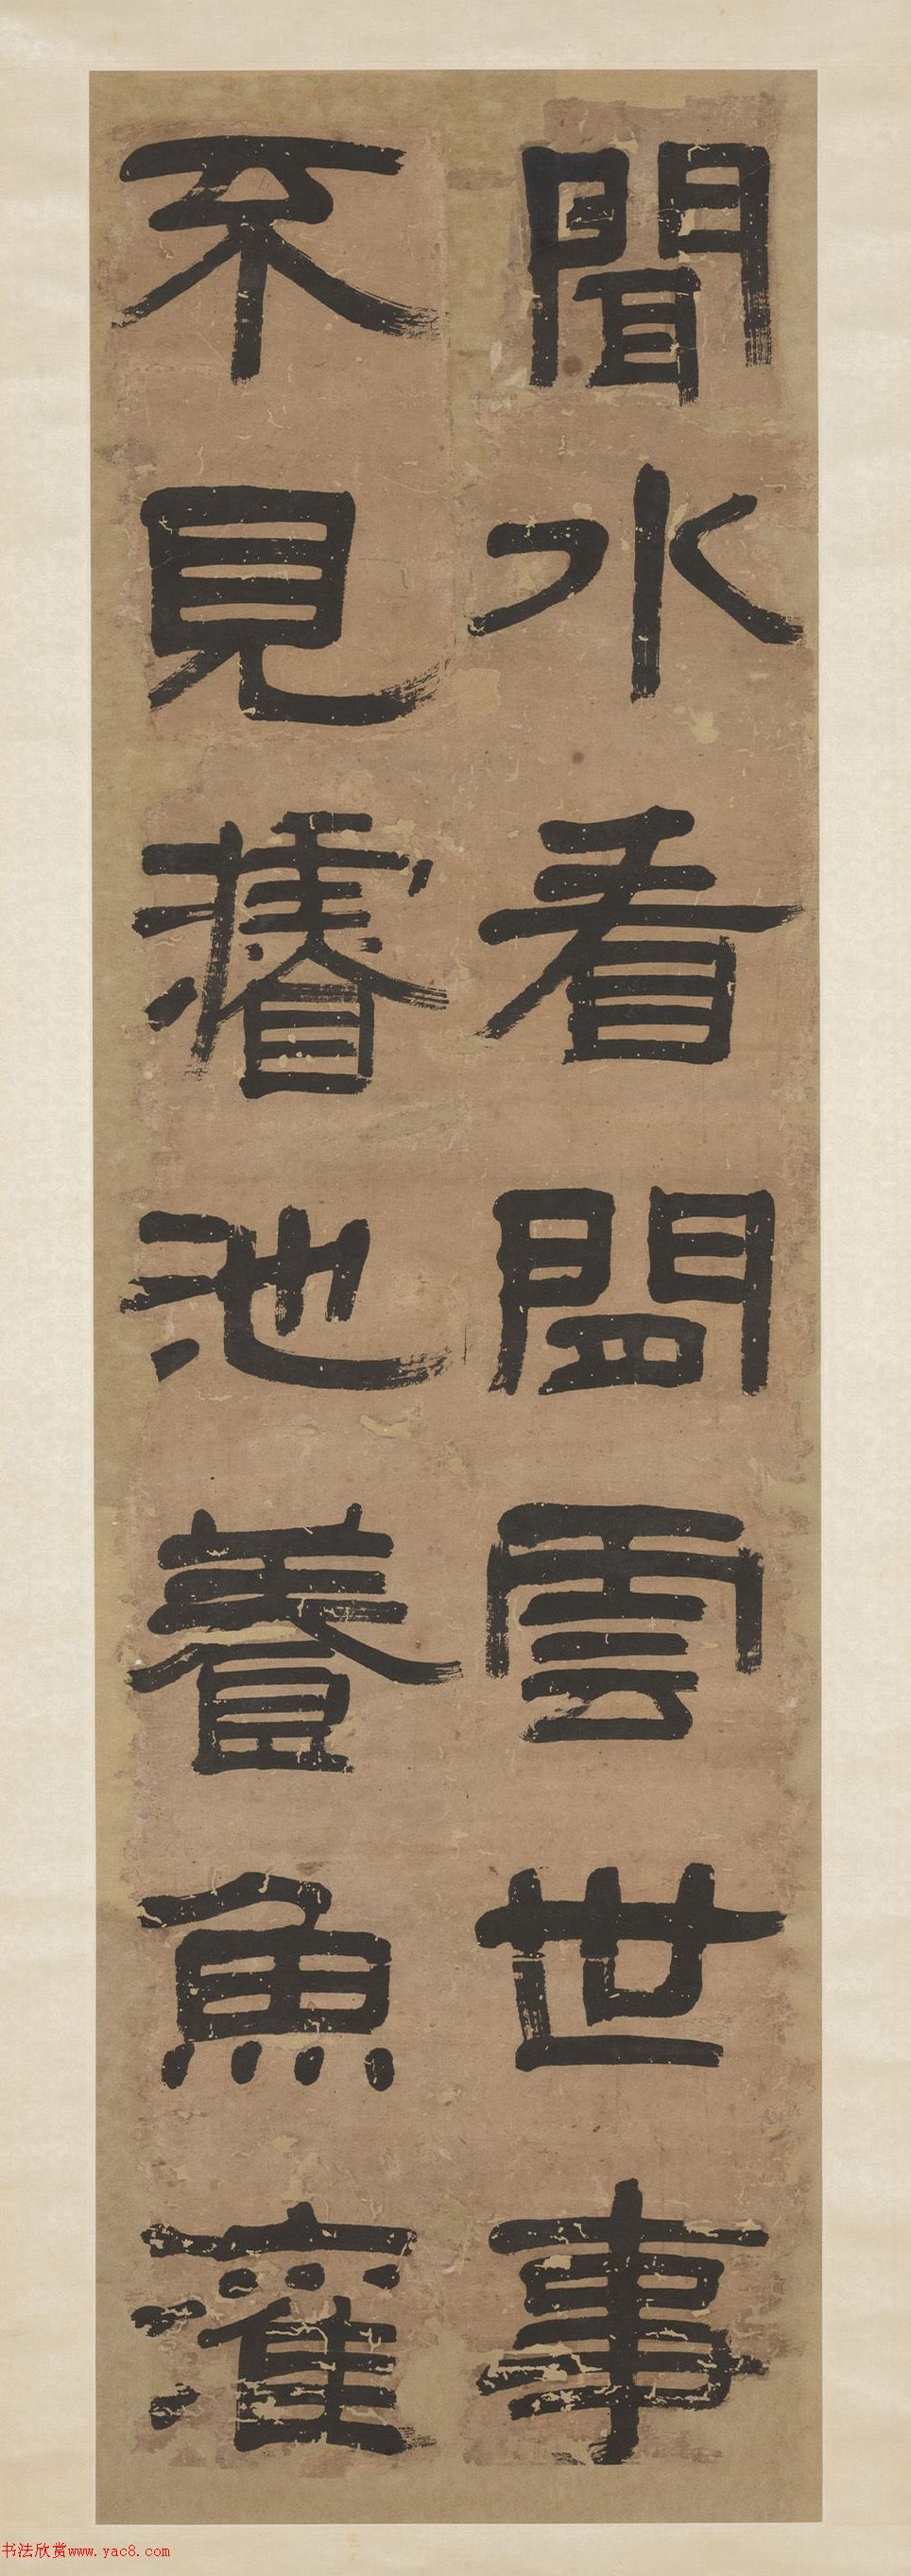 聞水看雲世事
不見池養魚灌
书法欣赏www.yac8.com